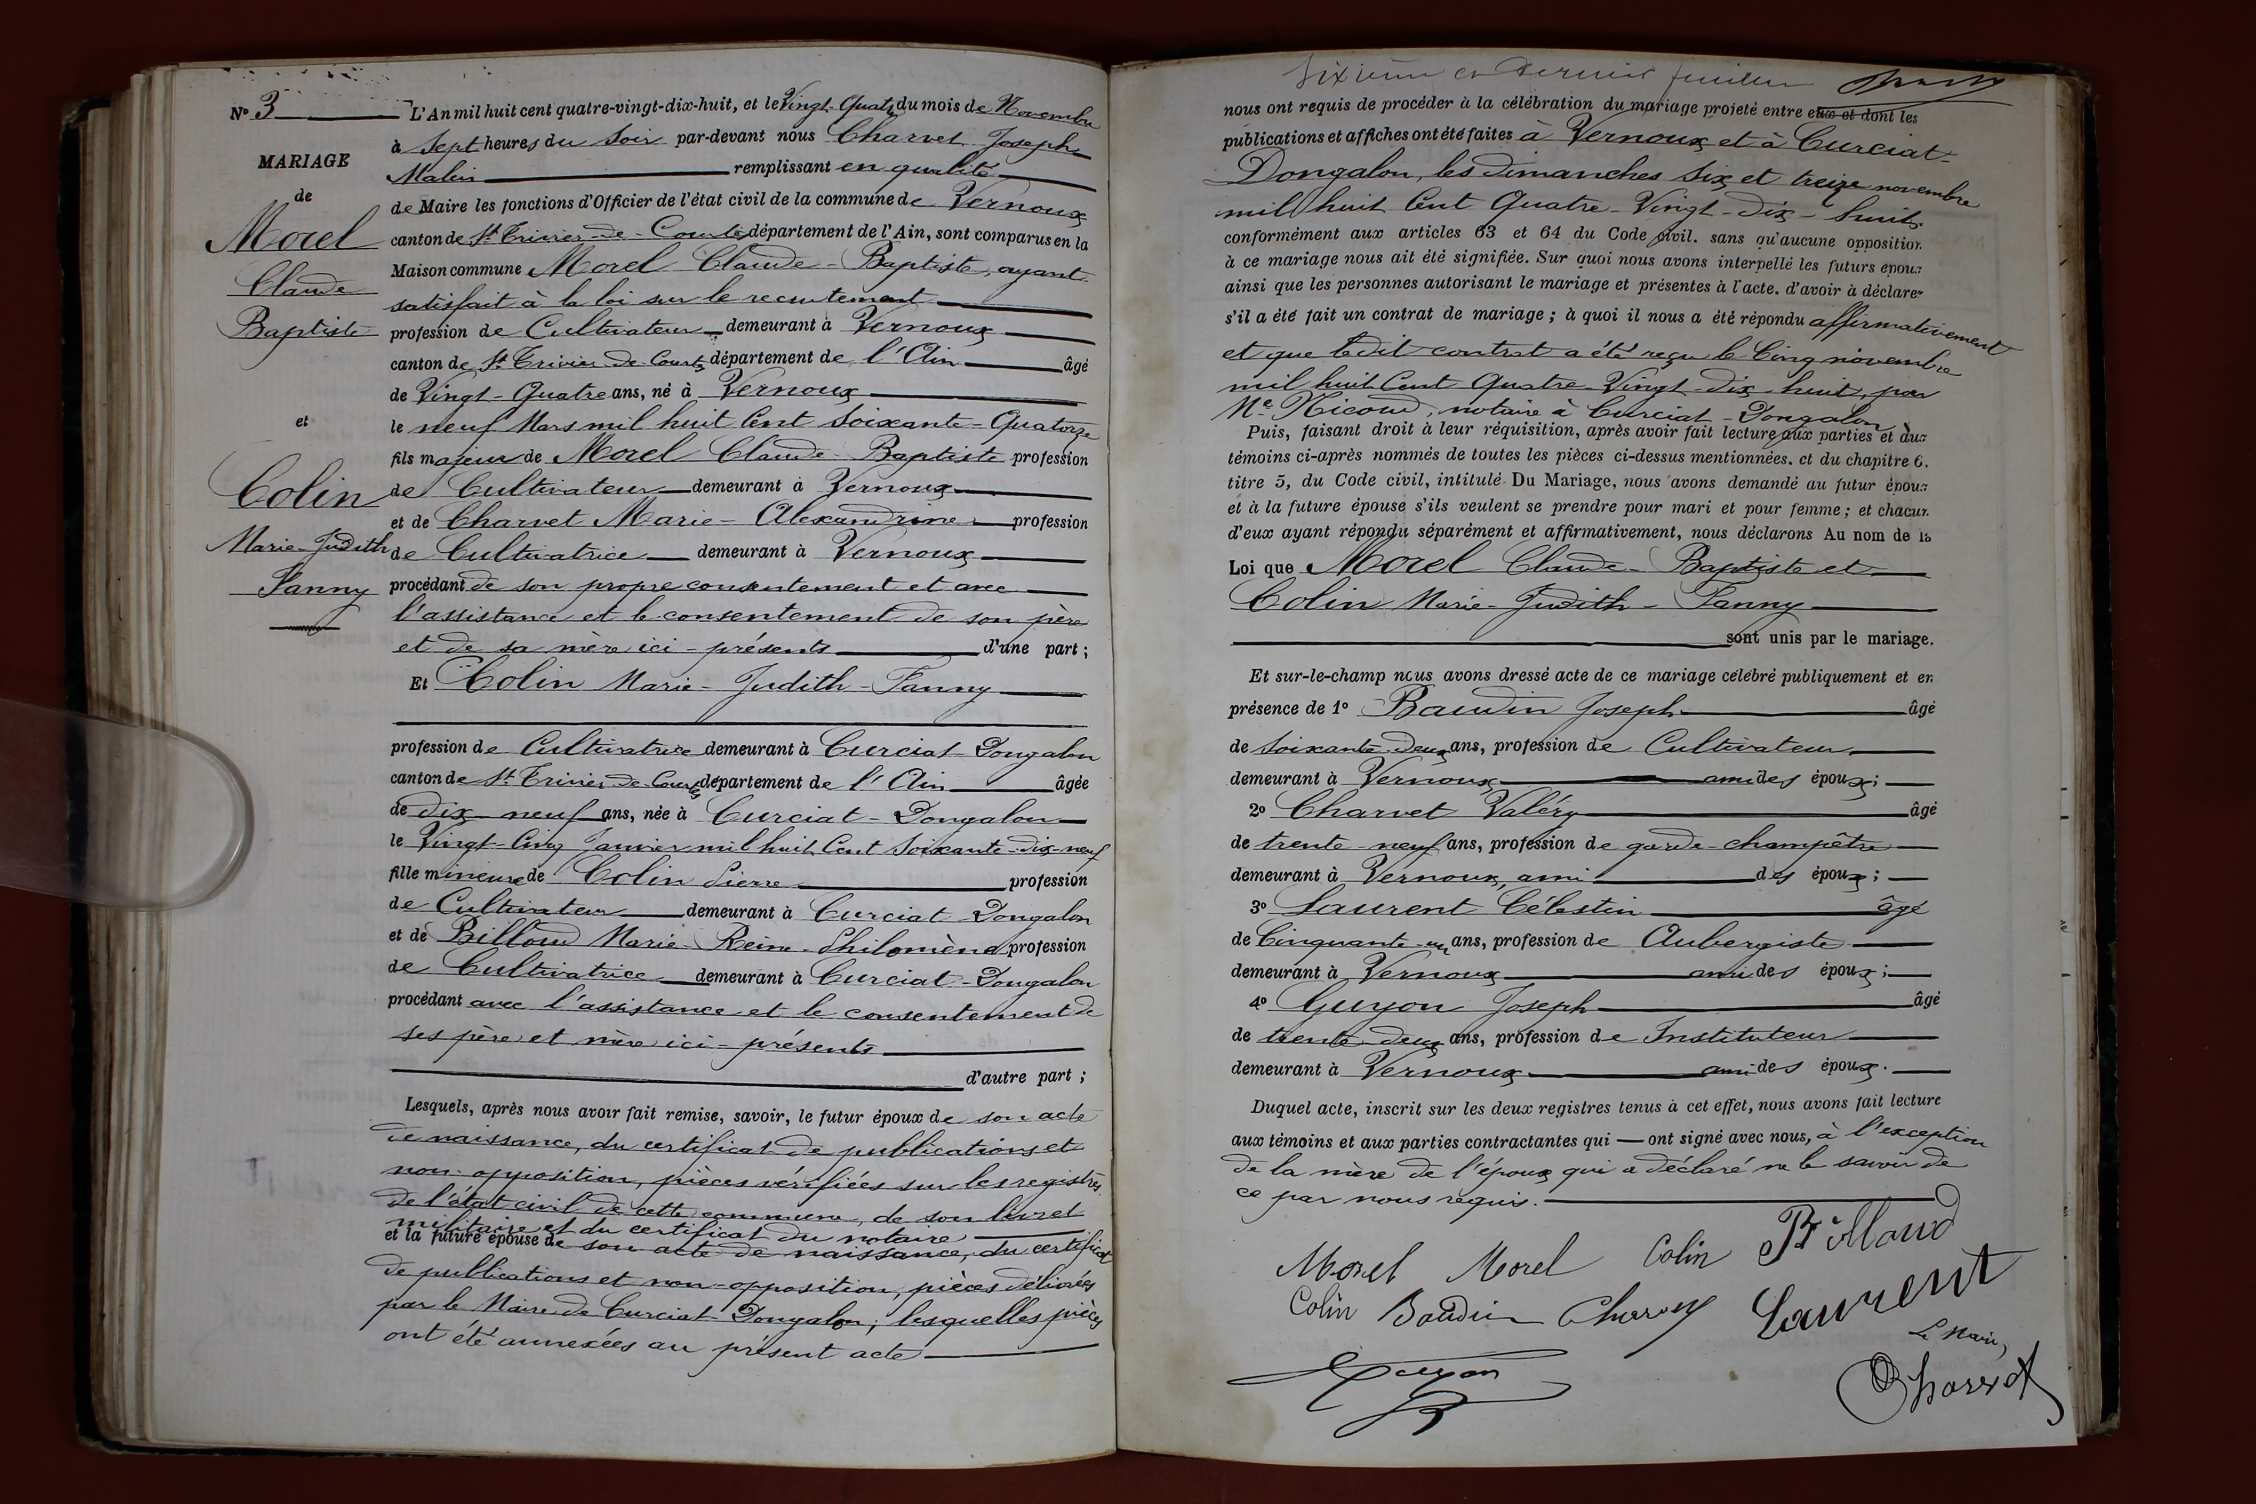 Nº 3
MARIAGE
de
Morel
Claude
Baptiste
et
Colin
Marie-Judith
Fanny
L'An mil huit cent quatre-vingt-dix-huit, et le Vingt-Quatre du mois de Novembre
à Sept heures du Soir par-devant nous Charvet Joseph
remplissant en qualité
de Maire les fonctions d'Officier de l'état civil de la commune de Vernoux
canton de St Trivier-de-Courtes département de l'Ain, sont comparus en la
Maison commune Morel Claude-Baptiste, ayant
satisfait à la loi sur le recrutement
profession de Cultivateur demeurant à Vernoux
canton de St Trivier-de-Courtes département de l'Ain âgé
de Vingt-Quatre ans, né à Vernoux
le neuf Mars mil huit Cent Soixante-Quatorze
fils majeur de Morel Claude-Baptiste profession
de Cultivateur demeurant à Vernoux
et de Charvet Marie-Alexandrine profession
de Cultivatrice demeurant à Vernoux
procédant de son propre consentement et avec
l'assistance et le consentement de son père
et de sa mère ici-présents d'une part ;
Et Colin Marie-Judith-Fanny
profession de Cultivatrice demeurant à Curciat-Dongalon
canton de St Trivier-de-Courtes département de l'Ain âgée
de dix-neuf ans, née à Curciat-Dongalon
le Vingt-Cinq Janvier mil huit Cent Soixante-dix-neuf
fille mineure de Colin Pierre profession
de Cultivateur demeurant à Curciat-Dongalon
et de Billoud Marie-Reine-Philomène profession
de Cultivatrice demeurant à Curciat-Dongalon
procédant avec l'assistance et le consentement de
ses père et mère ici-présents
d'autre part ;
Lesquels, après nous avoir fait remise, savoir, le futur époux de son acte
de naissance, du certificat de publications et
non-opposition, pièces vérifiées sur les registres
de l'état civil de cette commune, de son livret
militaire et du certificat du notaire
et la future épouse de son acte de naissance, du certificat
de publications et non-opposition, pièces délivrées
par le Maire de Curciat-Dongalon ; lesquelles pièces
ont été annexées au présent acte
Sixième et dernier feuillet
nous ont requis de procéder à la célébration du mariage projeté entre eux et dont les
publications et affiches ont été faites à Vernoux et à Curciat-
Dongalon, les dimanches six et treize novembre
mil huit Cent Quatre-Vingt-dix-huit
conformément aux articles 63 et 64 du Code civil. sans qu'aucune opposition
à ce mariage nous ait été signifiée. Sur quoi nous avons interpellé les futurs époux
ainsi que les personnes autorisant le mariage et présentes à l'acte. d'avoir à déclarer
s'il a été fait un contrat de mariage ; à quoi il nous a été répondu affirmativement
et que ledit contrat a été reçu le Cinq novembre
mil huit Cent Quatre-Vingt-dix-huit, par
Me Nicoud, notaire à Curciat-Dongalon
Puis, faisant droit à leur réquisition, après avoir fait lecture aux parties et aux
témoins ci-après nommés de toutes les pièces ci-dessus mentionnées. et du chapitre 6.
titre 5, du Code civil, intitulé Du Mariage, nous avons demandé au futur époux
et à la future épouse s'ils veulent se prendre pour mari et pour femme ; et chacun
d'eux ayant répondu séparément et affirmativement, nous déclarons Au nom de la
Loi que Morel Claude-Baptiste et
Colin Marie-Judith-Fanny
sont unis par le mariage.
Et sur-le-champ nous avons dressé acte de ce mariage célébré publiquement et en
présence de 1º Baudin Joseph âgé
de Soixante-deux ans, profession de Cultivateur
demeurant à Vernoux ami des époux ;
2º Charvet Valéry âgé
de trente-neuf ans, profession de garde-champêtre
demeurant à Vernoux, ami des époux ;
3º Laurent Célestin âgé
de Cinquante-un ans, profession de Aubergiste
demeurant à Vernoux ami des époux ;
4º Guyon Joseph âgé
de trente-deux ans, profession de Instituteur
demeurant à Vernoux ami des époux.
Duquel acte, inscrit sur les deux registres tenus à cet effet, nous avons fait lecture
aux témoins et aux parties contractantes qui ont signé avec nous, à l'exception
de la mère de l'époux qui a déclaré ne le savoir de
ce par nous requis.
Morel Morel Colin Billoud
Colin Baudin Charvet Laurent
Le Maire,
Guyon Charvet